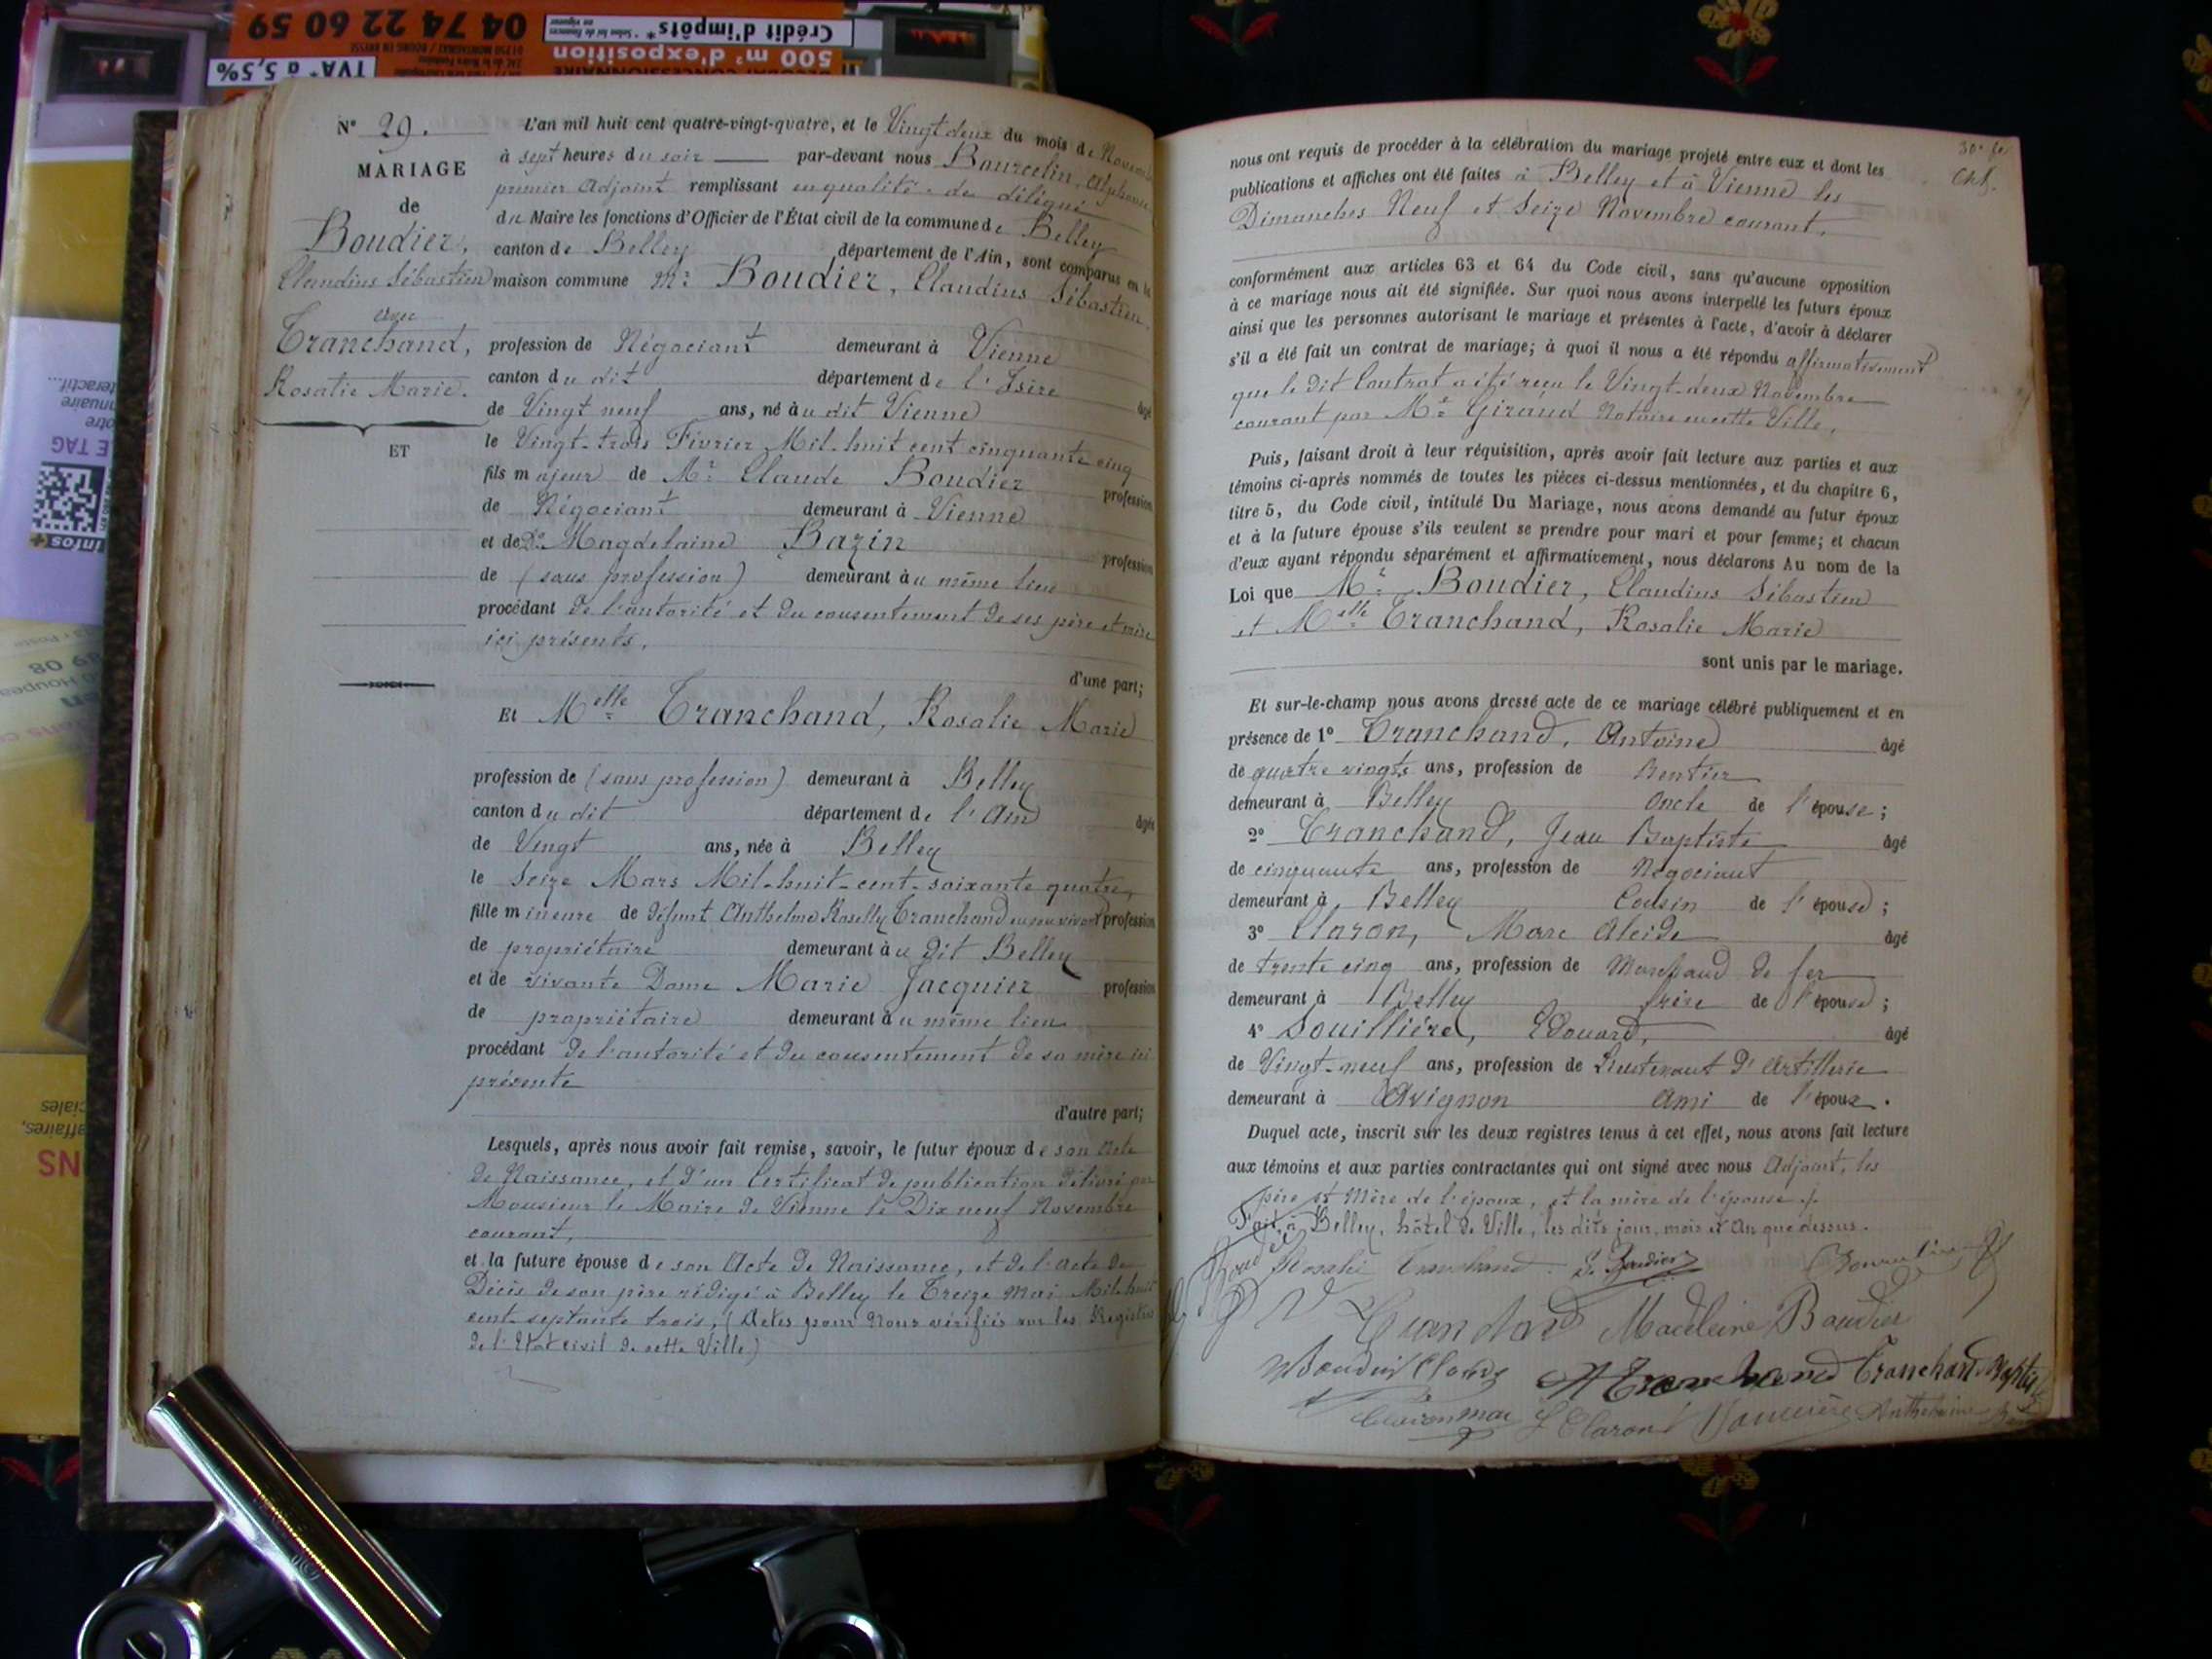 04 74 22 60 59
Crédit d'impôts*
500 m² d'exposition
TVA* à 5,5%
N° 29.
MARIAGE
de
Boudier,
Claudius Sébastien
avec
Tranchand,
Rosalie Marie.
ET
L'an mil huit cent quatre-vingt-quatre, et le Vingt deux du mois de Novembre
à sept heures du soir par-devant nous Bourcelin, Alphonse
premier Adjoint remplissant en qualité de délégué
du Maire les fonctions d'Officier de l'État civil de la commune de Belley
canton de Belley département de l'Ain, sont comparus en la
maison commune Mr Boudier, Claudius Sébastien,
profession de Négociant demeurant à Vienne
canton du dit département de l'Isère
âgé
de Vingt neuf ans, né au dit Vienne
le Vingt-trois Février Mil-huit cent cinquante cinq
fils majeur de Mr Claude Boudier profession
de Négociant demeurant à Vienne
et de De Magdelaine Bazin profession
de (sans profession) demeurant au même lieu
procédant de l'autorité et du consentement de ses père et mère
ici présents,
d'une part;
Et Melle Tranchand, Rosalie Marie
profession de (sans profession) demeurant à Belley
canton du dit département de l'Ain âgée
de Vingt ans, née à Belley
le Seize Mars Mil-huit-cent-soixante quatre,
fille mineure de défunt Anthelme Roselly Tranchand en son vivant profession
de propriétaire demeurant au dit Belley
et de vivante Dame Marie Jacquier profession
de propriétaire demeurant au même lieu
procédant de l'autorité et du consentement de sa mère ici
présente
d'autre part;
Lesquels, après nous avoir fait remise, savoir, le futur époux de son Acte
de Naissance, et d'un Certificat de publication délivré par
Monsieur le Maire de Vienne le Dix neuf Novembre
courant,
et la future épouse de son Acte de Naissance, et de l'acte de
Décès de son père rédigé à Belley le Treize Mai Mil huit
cent septante trois, (Actes pour Nous vérifiés sur les Registres
de l'Etat civil de cette Ville)
nous ont requis de procéder à la célébration du mariage projeté entre eux et dont les
publications et affiches ont été faites à Belley et à Vienne les
Dimanches Neuf et Seize Novembre courant,
conformément aux articles 63 et 64 du Code civil, sans qu'aucune opposition
à ce mariage nous ait été signifiée. Sur quoi nous avons interpellé les futurs époux
ainsi que les personnes autorisant le mariage et présentes à l'acte, d'avoir à déclarer
s'il a été fait un contrat de mariage; à quoi il nous a été répondu affirmativement
que le dit Contrat a été reçu le Vingt-deux Novembre
courant par Me Giraud Notaire en cette Ville,
Puis, faisant droit à leur réquisition, après avoir fait lecture aux parties et aux
témoins ci-après nommés de toutes les pièces ci-dessus mentionnées, et du chapitre 6,
titre 5, du Code civil, intitulé Du Mariage, nous avons demandé au futur époux
et à la future épouse s'ils veulent se prendre pour mari et pour femme; et chacun
d'eux ayant répondu séparément et affirmativement, nous déclarons Au nom de la
Loi que Mr Boudier, Claudius Sébastien
et Melle Tranchand, Rosalie Marie
sont unis par le mariage.
Et sur-le-champ nous avons dressé acte de ce mariage célébré publiquement et en
présence de 1° Tranchand, Antoine âgé
de quatre vingts ans, profession de Rentier
demeurant à Belley Oncle de l'épouse;
2° Tranchand, Jean Baptiste âgé
de cinquante ans, profession de Négociant
demeurant à Belley Cousin de l'épouse;
3° Claron, Marc Alcide âgé
de trente cinq ans, profession de Marchand de fer
demeurant à Belley frère de l'épouse;
4° Souillière, Edouard, âgé
de Vingt-neuf ans, profession de Lieutenant d'Artillerie
demeurant à Avignon Ami de l'époux.
Duquel acte, inscrit sur les deux registres tenus à cet effet, nous avons fait lecture
aux témoins et aux parties contractantes qui ont signé avec nous Adjoint, les
père et Mère de l'époux, et la mère de l'épouse
Fait à Belley, hôtel de Ville, les dits jour, mois et An que dessus.
Rosalie Tranchand C. Boudier
Tranchand Madeleine Boudier
Tranchand Tranchand
Claron